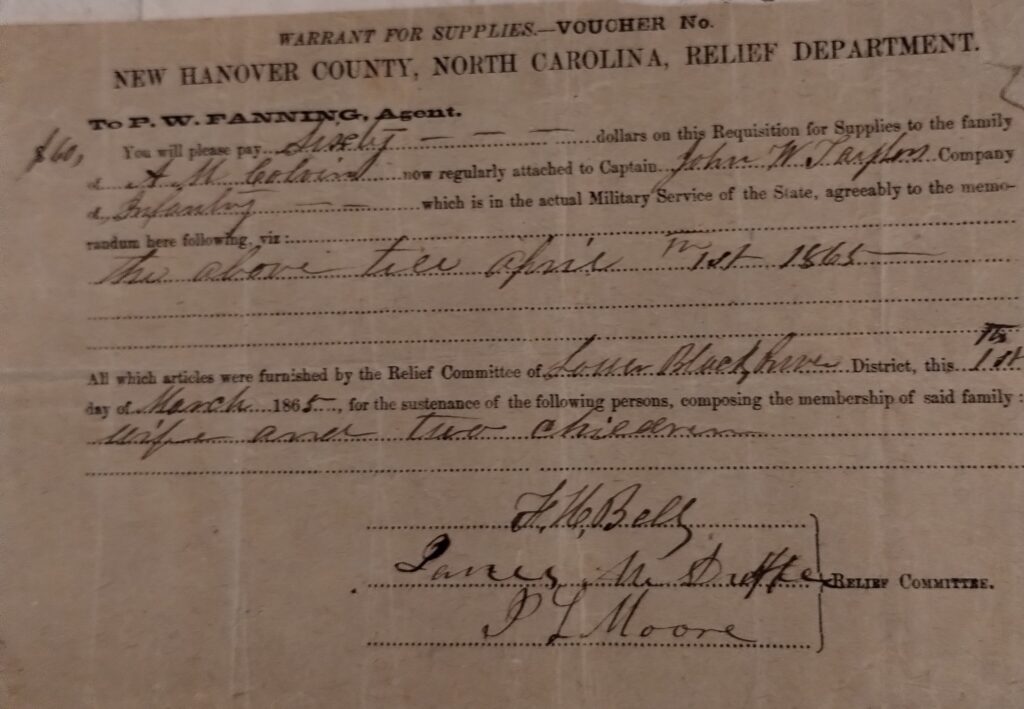 WARRANT FOR SUPPLIES.—VOUCHER No.
NEW HANOVER COUNTY, NORTH CAROLINA, RELIEF DEPARTMENT.
To P. W. FANNING, Agent.
$60, You will please pay Sixty — — — dollars on this Requisition for Supplies to the family
of A M Colvin now regularly attached to Captain John W Taylors Company
of Infantry — — which is in the actual Military Service of the State, agreeably to the memo-
randum here following, viz:
the above till april 1st 1865 —
All which articles were furnished by the Relief Committee of Lower Black River District, this 1st
day of March 1865, for the sustenance of the following persons, composing the membership of said family:
wife and two children
Bell
James Mc Duffie RELIEF COMMITTEE.
Moore